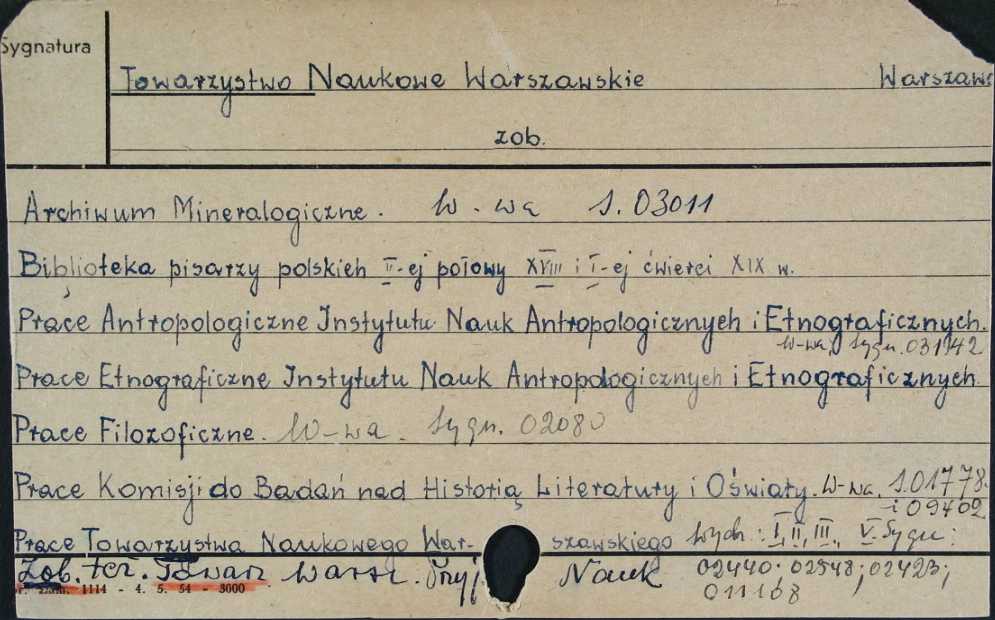 Sygnatura
Towarzystwo Naukowe Warszawskie Warszawa
zob.
Archiwum Mineralogiczne. W-wa S. 03011
Biblioteka pisarzy polskich II-ej połowy XVIII i I-ej ćwierci XIX w.
Prace Antropologiczne Instytutu Nauk Antropologicznych i Etnograficznych.
W-wa, Sygn. 031942
Prace Etnograficzne Instytutu Nauk Antropologicznych i Etnograficznych
Prace Filozoficzne. W-wa. Sygn. 02080
Prace Komisji do Badań nad Historią Literatury i Oświaty. W-wa. S. 01778.
i 09402
Prace Towarzystwa Naukowego War- szawskiego Wydz.: I, II, III, V. Sygn:
Zob. też. Towarz Warsz. Przyj. Nauk 02440; 02548; 02423;
011168
1114 - 4. 5. 54 - 3000